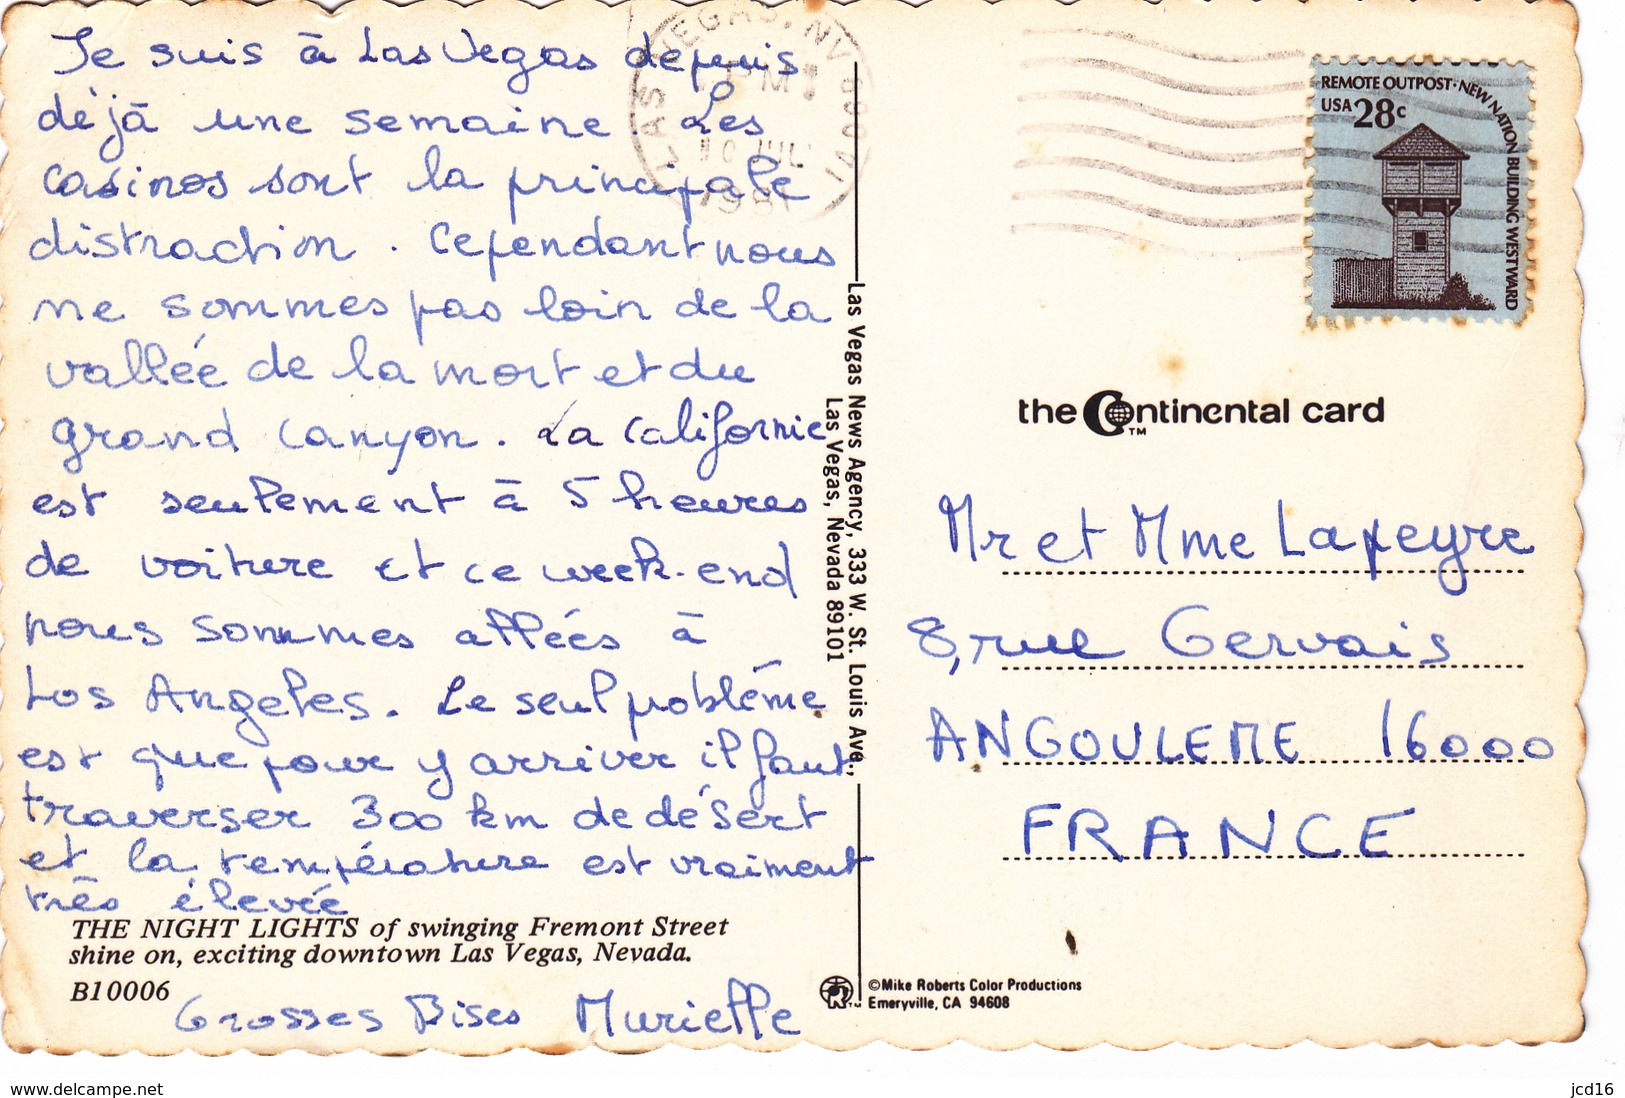 Je suis à Las Vegas depuis
déjà une semaine. Les
casinos sont la principale
distraction. Cependant nous
ne sommes pas loin de la
vallée de la mort et du
grand canyon. La Californie
est seulement à 5 heures
de voiture et ce week-end
nous sommes allées à
Los Angeles. Le seul problème
est que pour y arriver il faut
traverser 300 km de désert
et la température est vraiment
très élevée
THE NIGHT LIGHTS of swinging Fremont Street
shine on, exciting downtown Las Vegas, Nevada.
B10006
Grosses Bises Murielle
LAS VEGAS, NV
JUL
1981
Las Vegas News Agency, 333 W. St. Louis Ave.,
Las Vegas, Nevada 89101
REMOTE OUTPOST · NEW NATION BUILDING WESTWARD
USA 28c
the Continental card
TM
Mr et Mme Lapeyre
8, rue Gervais
ANGOULEME 16000
FRANCE
©Mike Roberts Color Productions
Emeryville, CA 94608
www.delcampe.net
jcd16